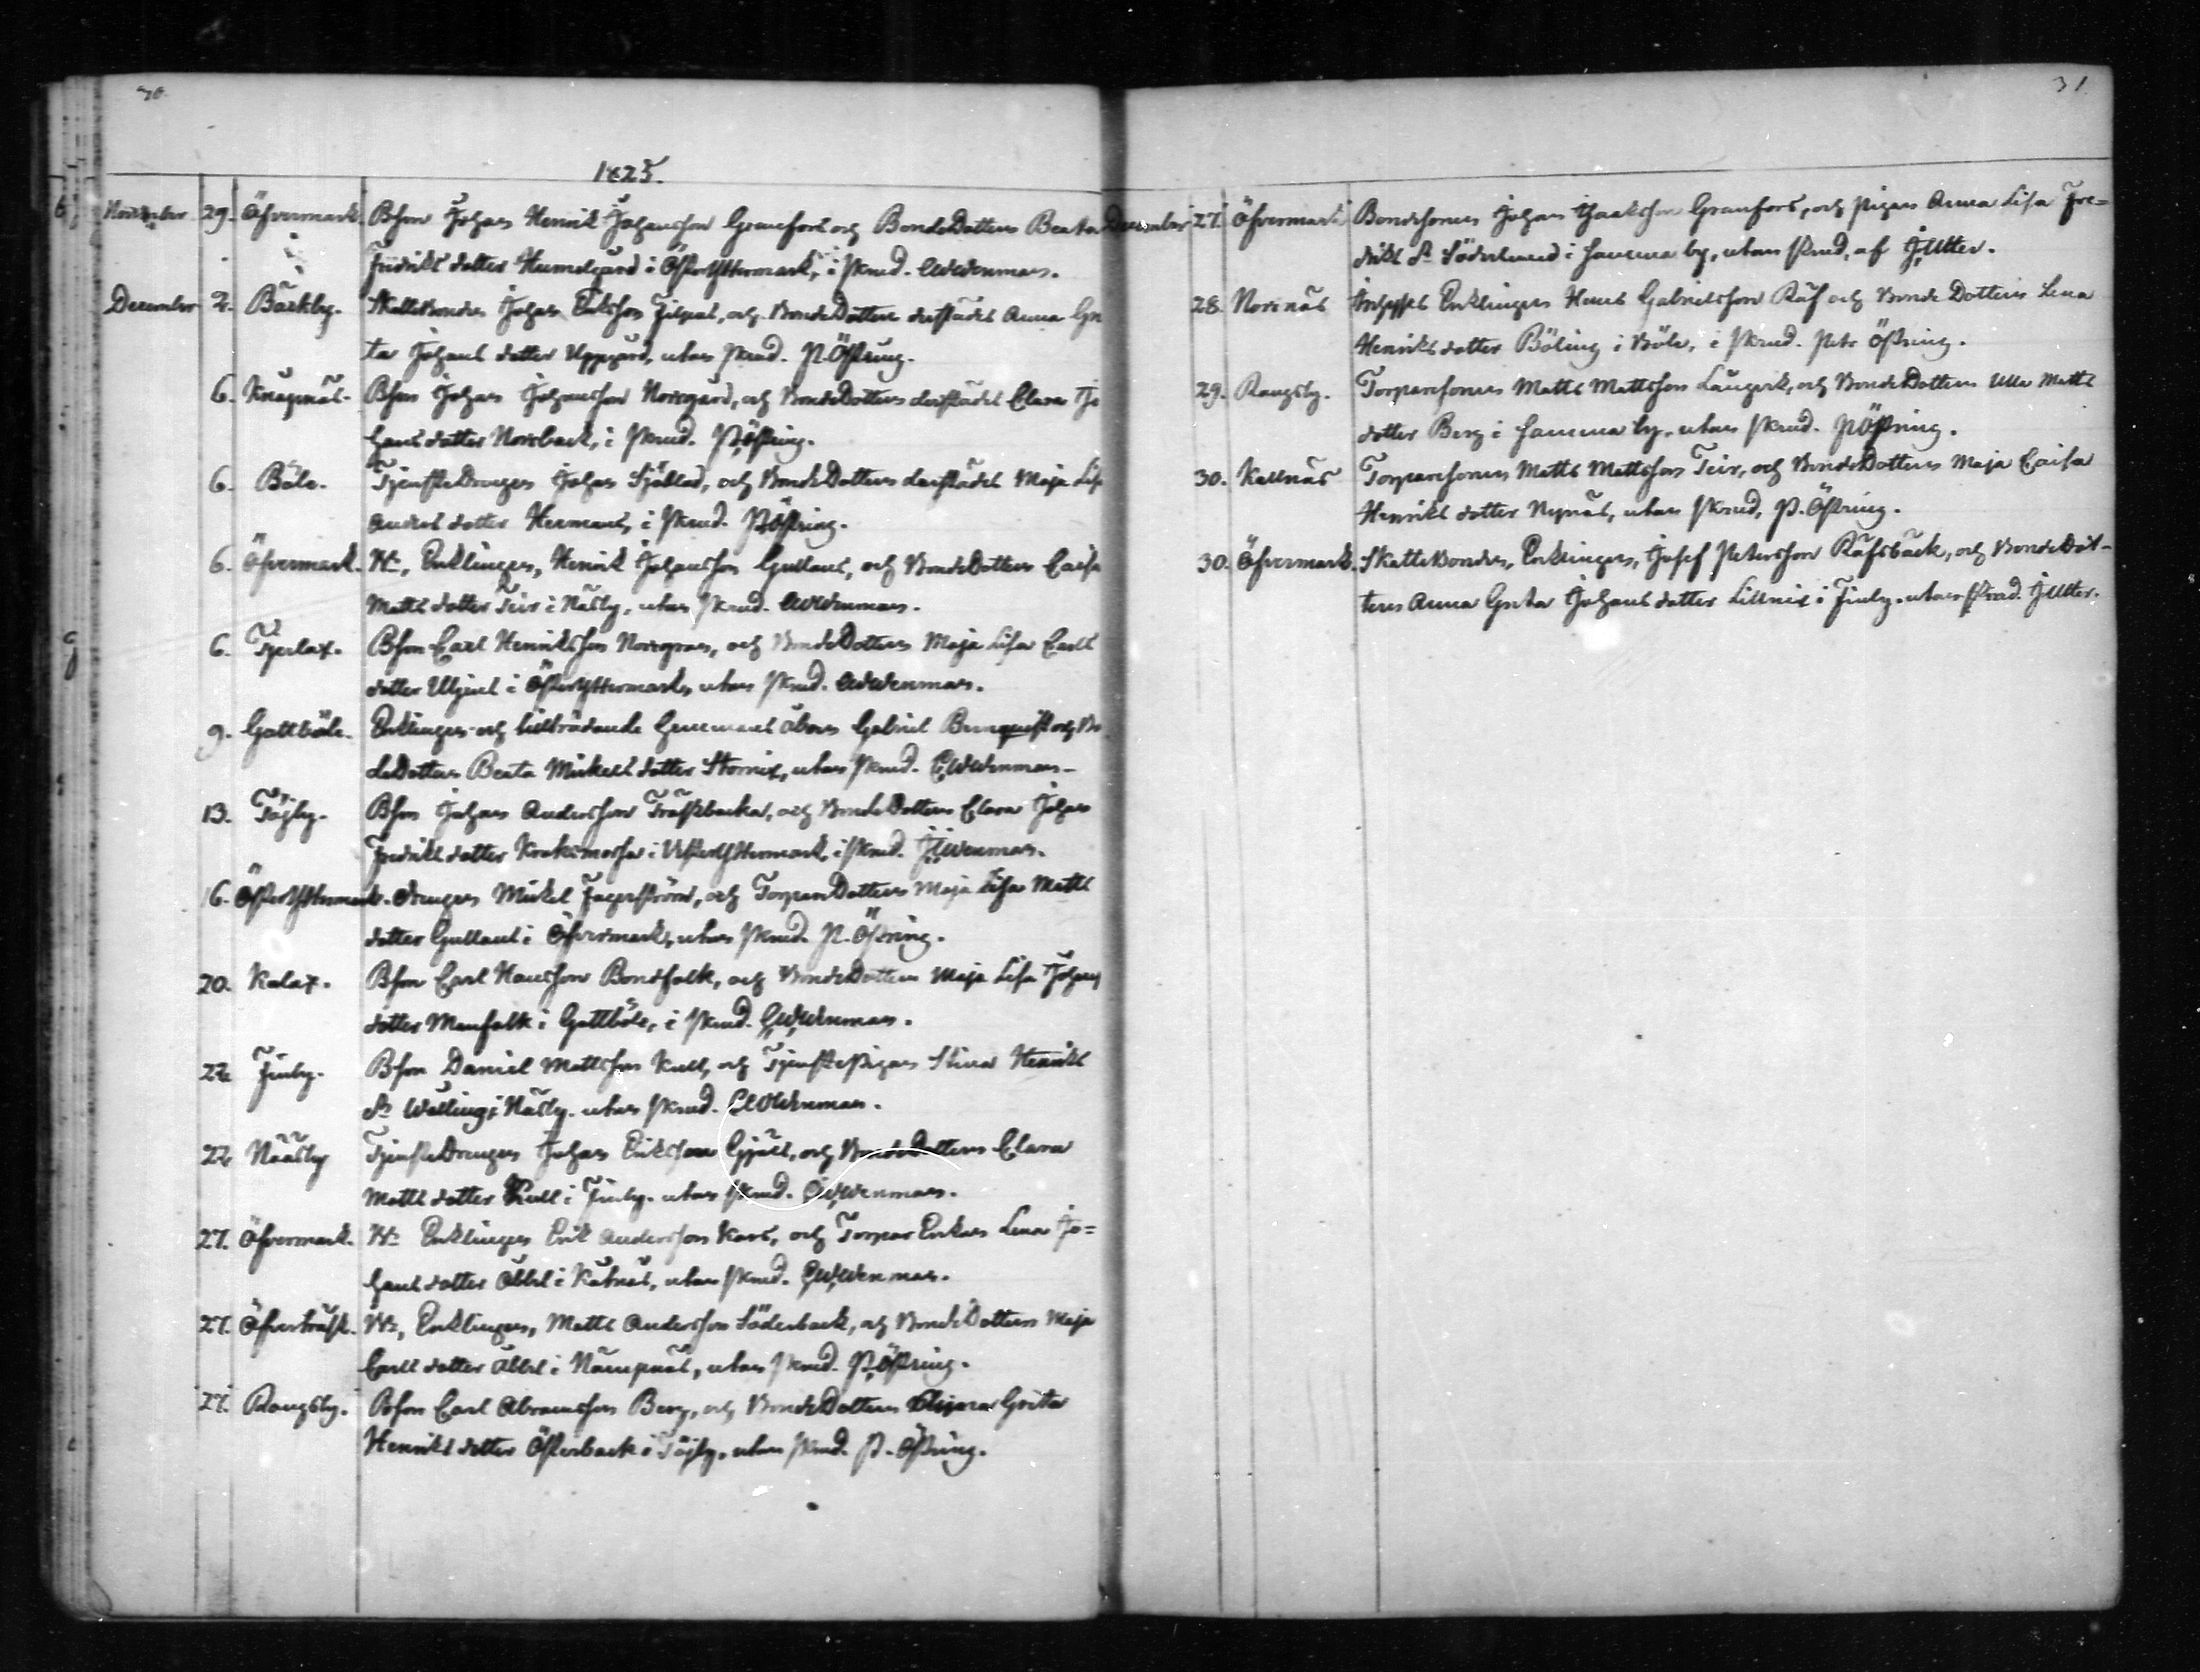 30.
1825.
November 29. Öfvermark. Bson Johan Henrik Johansson Granfors och BondeDottren Beata
Fredriks dotter Humelgård i ÖsterYttermark, i skrud.
December 2. Bäckby. Skattebonden Johan Eriksson och BondeDottren derstädes Anna Gre
ta Johans dotter Uppgård, utan skrud. P. Östring.
6. Knapnäs. Bson Johan Johansson Norrgård, och BondeDottren derstädes Clara Jo
hans dotter Norrback, i skrud. P. Östring.
6. Böle. TjensteDrengen Johan Sjöblad, och BondeDottren derstädes Maja Lisa
Anders dotter Hermans, i skrud. P. Östring.
6. Öfvermark. Enklingen, Henrik Johansson Gullans, och BondeDottren Caisa
Matts dotter Teir i Näsby, utan skrud.
6. Tjerlax. Bson Carl Henriksson Norrgran, och BondeDottren Maja Lisa Carls
dotter i ÖsterYttermark, utan skrud.
9. Gottböle. Enklingen och tillträdande Åboen Gabriel och Bon
deDottren Beata Mickels dotter Stornix, utan skrud.
13. Töjby. Bson Johan Andersson Träskbacka, och BondeDottren Clara Johan
Fredriks dotter i VesterYttermark, i skrud.
16. ÖsterYttermark. Drengen Mickel Fagerström, och TorpareDottren Maja Lisa Matts
dotter Gullans i Öfvermark, utan skrud. P. Östring.
20. Kalax. Bson Carl Hansson Bondfolk, och BondeDottren Maja Lisa Johans
dotter Manfolk i Gottböle, i skrud.
22. Finby. Bson Daniel Mattsson Kull, och TjenstePigan Stina Henriks
dr Welling i Näsby. utan skrud.
22. Nääsby TjensteDrengen Johan Eriksson och BondeDottren Clara
Matts dotter Kull i Finby. utan skrud.
27. Öfvermark. Enklingen Erik Andersson Kars, och Torpar Enkan Lena Jo=
hans dotter Åbbs i Kåtnäs, utan skrud.
27. Öfverträsk. Enklingen, Matts Andersson Söderback, och BondeDottren Maja
Carls dotter Åbbs i Nämpnäs, utan skrud. P. Östring.
27. Rangsby. Bson Carl Abramsson Berg, och BondeDottren Greta
Henriks dotter Österback i Töjby, utan skrud. P. Östring.
31.
December 27. Öfvermark Bondesonen Johan Isaksson Granfors, och pigan Anna Lisa Fre=
driks dr Söderlund i samma by, utan skrud, af
28. Norrnäs Enklingen Hans Gabrielsson Räf och BondeDottren Lena
Henriks dotter Böling i Böle, i skrud. Petr Östring.
29. Rangsby. Torparesonen Matts Mattsson Långvik, och BondeDottren Ulla Matts
dotter Berg i samma by, utan skrud. P. Östring.
30. Kallnäs Torparesonen Matts Mattsson Teir, och BondeDottren Maja Caisa
Henriks dotter Nynäs, utan skrud, P. Östring.
30. Öfvermark. Skattebonden, Enklingen, Josef Petersson Räfsbäck, och BondeDot=
tren Anna Greta Johans dotter Lillnix i Finby. utan skrud.